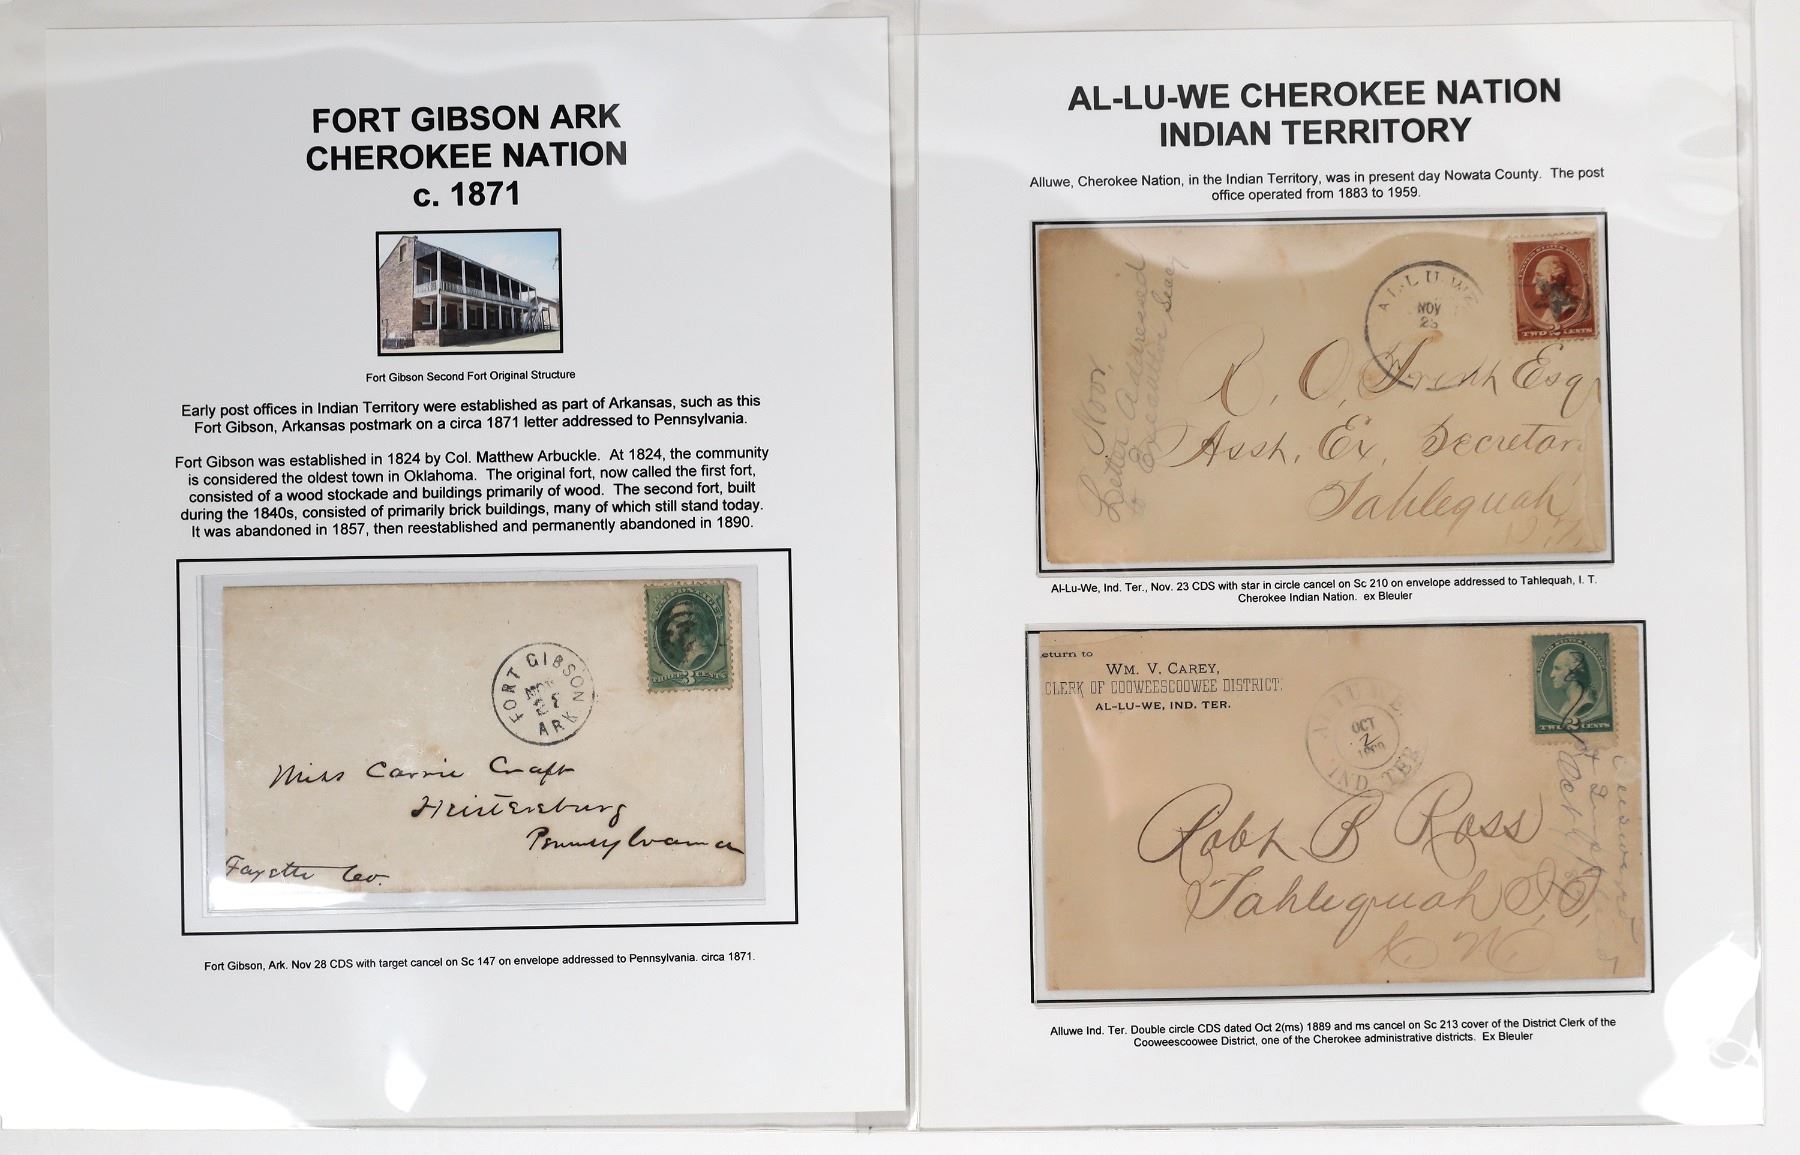 FORT GIBSON ARK
CHEROKEE NATION
c. 1871
Fort Gibson Second Fort Original Structure
Early post offices in Indian Territory were established as part of Arkansas, such as this
Fort Gibson, Arkansas postmark on a circa 1871 letter addressed to Pennsylvania.
Fort Gibson was established in 1824 by Col. Matthew Arbuckle. At 1824, the community
is considered the oldest town in Oklahoma. The original fort, now called the first fort,
consisted of a wood stockade and buildings primarily of wood. The second fort, built
during the 1840s, consisted of primarily brick buildings, many of which still stand today.
It was abandoned in 1857, then reestablished and permanently abandoned in 1890.
FORT GIBSON
NOV
ARK
THREE 3 CENTS
Miss Carrie Craft
Heistersburg
Pennsylvania
Fayette Co.
Fort Gibson, Ark. Nov 28 CDS with target cancel on Sc 147 on envelope addressed to Pennsylvania. circa 1871.
AL-LU-WE CHEROKEE NATION
INDIAN TERRITORY
Alluwe, Cherokee Nation, in the Indian Territory, was in present day Nowata County. The post
office operated from 1883 to 1959.
Letter Addressed
to Executive Secy
AL-LU-WE
NOV
23
TWO 2 CENTS
Esq
Asst. Ex. Secretary
Tahlequah
Al-Lu-We, Ind. Ter., Nov. 23 CDS with star in circle cancel on Sc 210 on envelope addressed to Tahlequah, I. T.
Cherokee Indian Nation. ex Bleuler
eturn to
WM. V. CAREY,
CLERK OF COOWEESCOOWEE DISTRICT.
AL-LU-WE, IND. TER.
OCT
2
IND TER
TWO 2 CENTS
Robt B Ross
Tahlequah I.T.
C N
Alluwe Ind. Ter. Double circle CDS dated Oct 2(ms) 1889 and ms cancel on Sc 213 cover of the District Clerk of the
Cooweescoowee District, one of the Cherokee administrative districts. Ex Bleuler